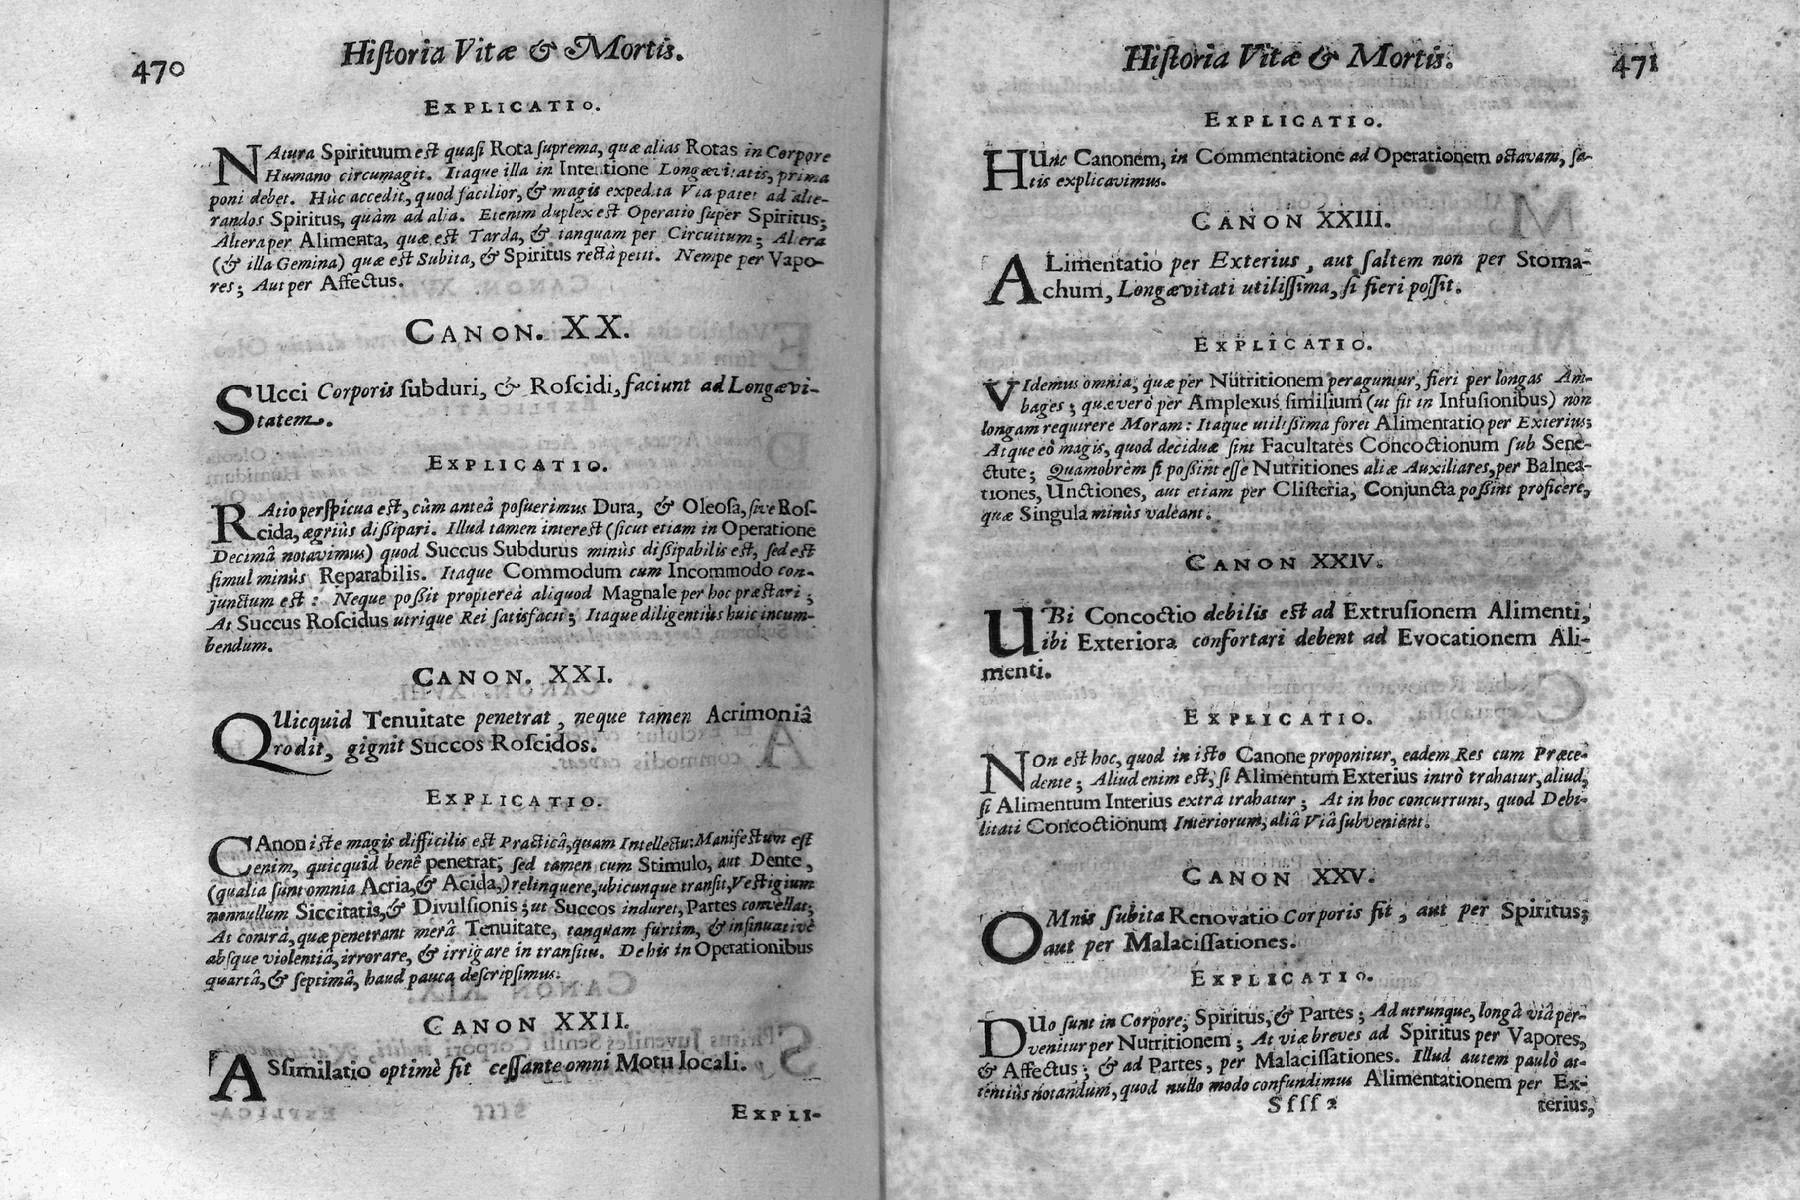 470
Hiſtoria Vitæ & Mortis.
EXPLICATIO.
NAtura Spirituum eſt quaſi Rota ſuprema, quæ alias Rotas in Corpore
Humano circumagit. Itaque illa in Intentione Longævitatis, prima
poni debet. Hùc accedit, quod facilior, & magis expedita Via patet ad alte-
randos Spiritus, quàm ad alia. Etenim duplex eſt Operatio ſuper Spiritus;
Altera per Alimenta, quæ eſt Tarda, & tanquam per Circuitum; Altera
(& illa Gemina) quæ eſt Subita, & Spiritus rectà petit. Nempe per Vapo-
res; Aut per Affectus.
CANON. XX.
SUcci Corporis ſubduri, & Roſcidi, faciunt ad Longævi-
tatem.
EXPLICATIO.
RAtio perſpicua eſt, cùm anteà poſuerimus Dura, & Oleoſa, ſive Roſ-
cida, ægriùs diſſipari. Illud tamen intereſt (ſicut etiam in Operatione
Decimâ notavimus) quod Succus Subdurus minùs diſſipabilis eſt, ſed eſt
ſimul minùs Reparabilis. Itaque Commodum cum Incommodo con-
junctum eſt: Neque poſſit proptereà aliquod Magnale per hoc præſtari;
At Succus Roſcidus utrique Rei ſatisfacit; Itaque diligentiùs huic incum-
bendum.
CANON. XXI.
QUicquid Tenuitate penetrat, neque tamen Acrimoniâ
rodit, gignit Succos Roſcidos.
EXPLICATIO.
CAnon iſte magis difficilis eſt Practicâ, quam Intellectu: Manifeſtum eſt
enim, quicquid benè penetrat; ſed tamen cum Stimulo, aut Dente,
(qualia ſunt omnia Acria, & Acida,) relinquere, ubicunque tranſit, Veſtigium
nonnullum Siccitatis, & Divulſionis; ut Succos induret, Partes convellat;
At contrà, quæ penetrant merâ Tenuitate, tanquam furtim, & inſinuativè
abſque violentiâ, irrorare, & irrigare in tranſitu. De his in Operationibus
quartâ, & ſeptimâ, haud pauca deſcripſimus.
CANON XXII.
ASſimilatio optimè fit ceſſante omni Motu locali.
EXPLI-
Hiſtoria Vitæ & Mortis.
471
EXPLICATIO.
HUnc Canonem, in Commentatione ad Operationem octavam, ſa-
tis explicavimus.
CANON XXIII.
ALimentatio per Exterius, aut ſaltem non per Stoma-
chum, Longævitati utiliſſima, ſi fieri poſſit.
EXPLICATIO.
VIdemus omnia, quæ per Nutritionem peraguntur, fieri per longas Am-
bages; quæ verò per Amplexus ſimilium (ut fit in Infuſionibus) non
longam requirere Moram: Itaque utiliſſima foret Alimentatio per Exterius;
Atque eò magis, quod deciduæ ſint Facultates Concoctionum ſub Sene-
ctute; Quamobrèm ſi poſſint eſſe Nutritiones aliæ Auxiliares, per Balnea-
tiones, Unctiones, aut etiam per Cliſteria, Conjuncta poſſint proficere,
quæ Singula minùs valeant.
CANON XXIV.
UBi Concoctio debilis eſt ad Extruſionem Alimenti,
ibi Exteriora confortari debent ad Evocationem Ali-
menti.
EXPLICATIO.
NOn eſt hoc, quod in iſto Canone proponitur, eadem Res cum Præce-
dente; Aliud enim eſt, ſi Alimentum Exterius intrò trahatur, aliud,
ſi Alimentum Interius extra trahatur; At in hoc concurrunt, quod Debi-
litati Concoctionum Interiorum, aliâ Viâ ſubveniant.
CANON XXV.
OMnis ſubita Renovatio Corporis fit, aut per Spiritus;
aut per Malaciſſationes.
EXPLICATIO.
DUo ſunt in Corpore; Spiritus, & Partes; Ad utrunque, longâ viâ per-
venitur per Nutritionem; At viæ breves ad Spiritus per Vapores,
& Affectus; & ad Partes, per Malaciſſationes. Illud autem paulò at-
tentiùs notandum, quod nullo modo confundimus Alimentationem per Ex-
Sſſſ 2
terius,